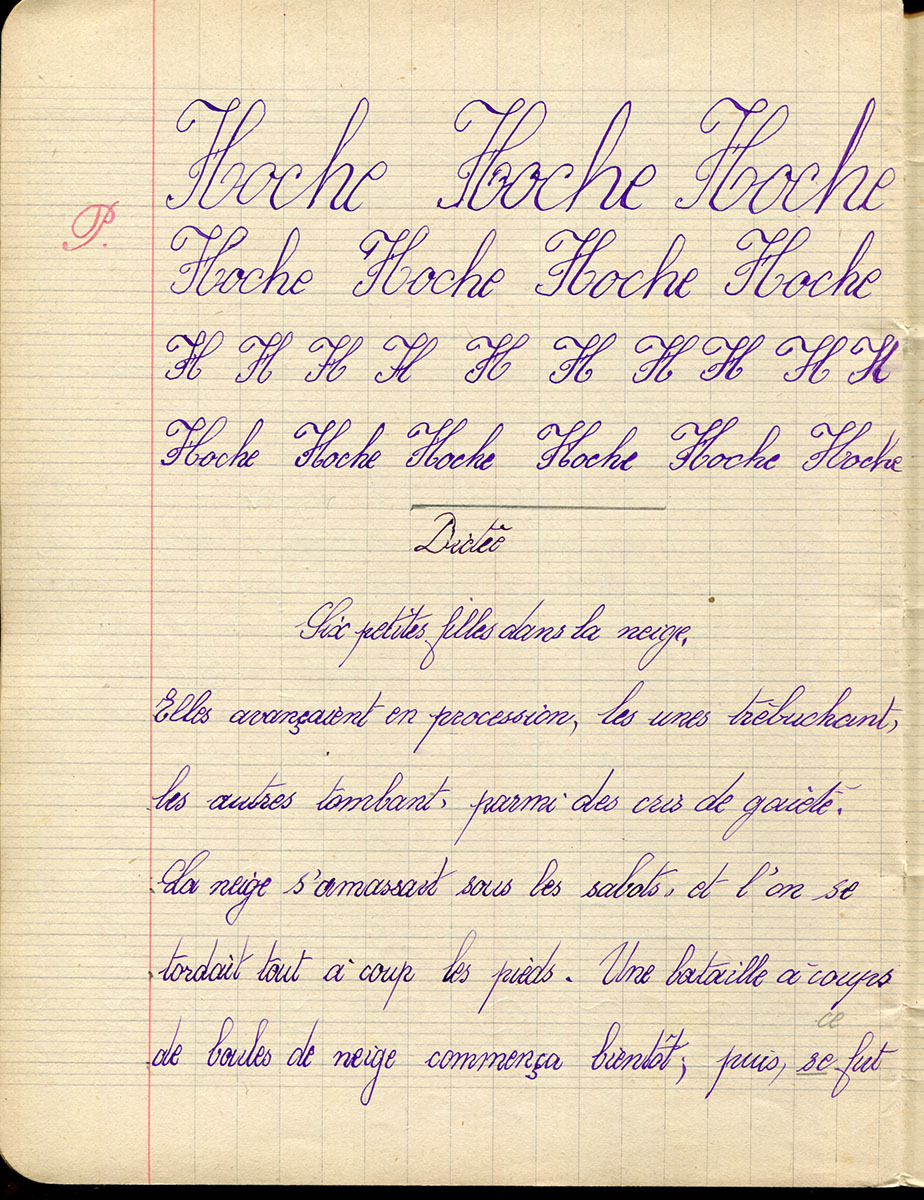 Hoche Hoche Hoche
P.
Hoche Hoche Hoche Hoche
H H H H H H H H H H
Hoche Hoche Hoche Hoche Hoche Hoche
Dictée
Six petites filles dans la neige.
Elles avançaient en procession, les unes trébuchant,
les autres tombant, parmi des cris de gaieté.
La neige s'amassait sous les sabots, et l'on se
tordait tout à coup les pieds. Une bataille à coups
ce
de boules de neige commença bientôt; puis, se fut